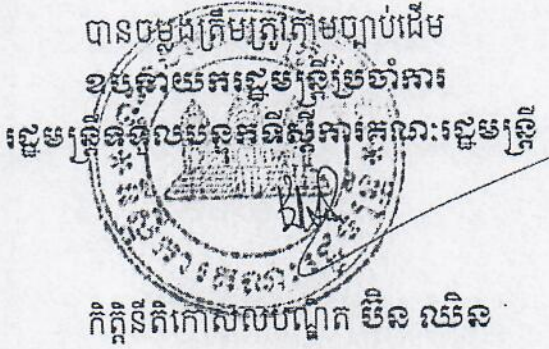 បានចម្លងត្រឹមត្រូវតាមច្បាប់ដើម
ឧបនាយករដ្ឋមន្ត្រីប្រចាំការ
រដ្ឋមន្ត្រីទទួលបន្ទុកទីស្តីការគណៈរដ្ឋមន្ត្រី
កិត្តិនីតិកោសលបណ្ឌិត ប៊ិន ឈិន